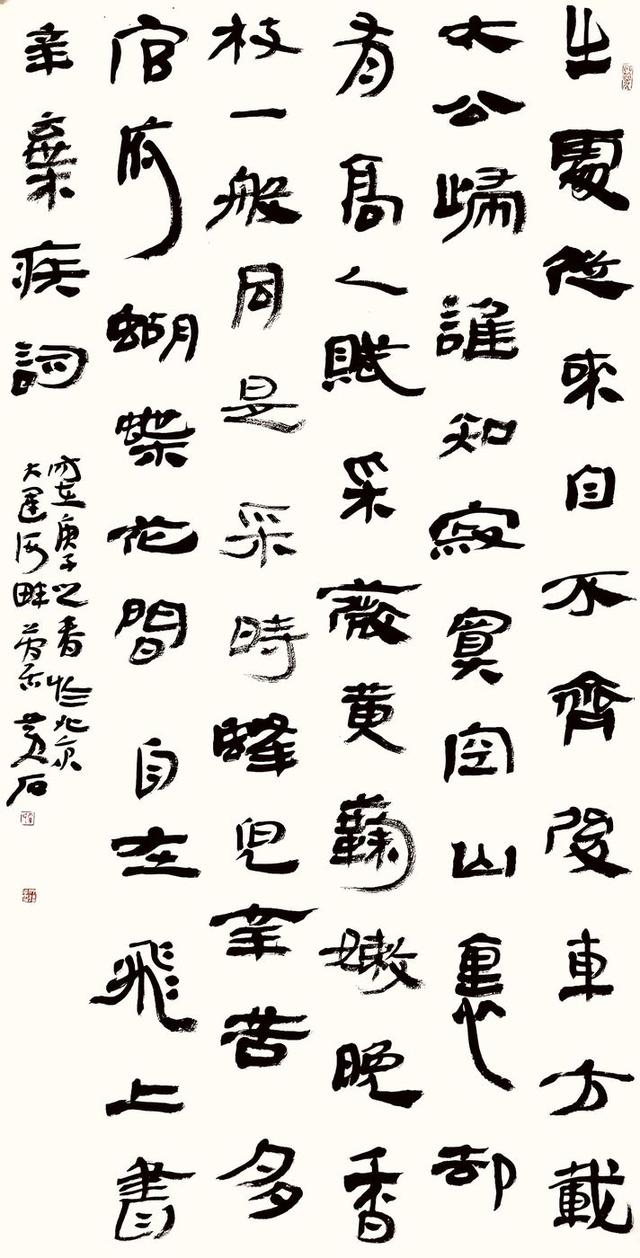 出處從來自不齊後車方載
太公歸誰知寂寞空山裏却
有高人賦采薇黄蘜嫩晚香
枝一般同是采時蜂兒辛苦多
官府蝴蝶花間自在飛上書
辛棄疾詞
時在庚子之春於北京
大運河畔黄石